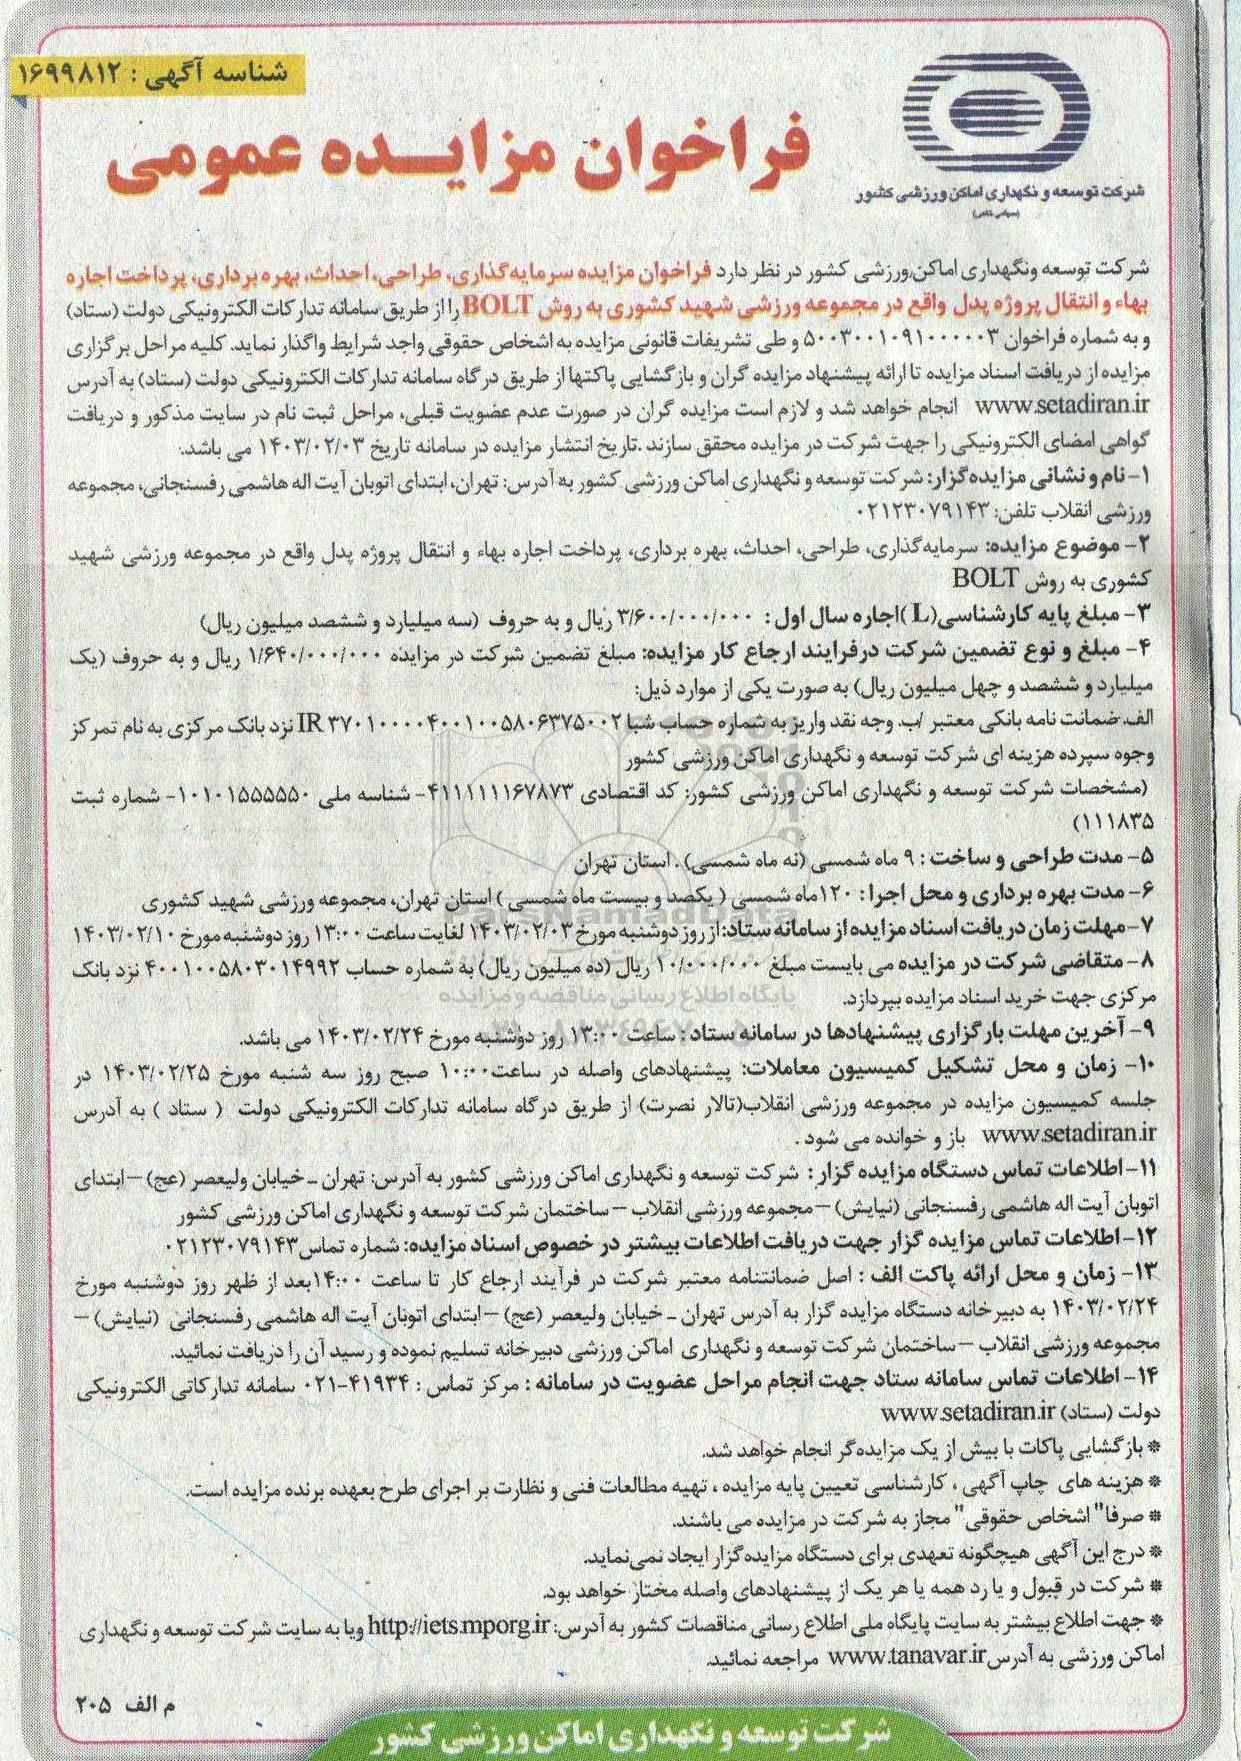 شناسه آگهی : ۱۶۹۹۸۱۲
شرکت توسعه و نگهداری اماکن ورزشی کشور
(سهامی خاص)
فراخوان مزایده عمومی
شرکت توسعه ونگهداری اماکن ورزشی کشور در نظر دارد فراخوان مزایده سرمایه‌گذاری، طراحی، احداث، بهره برداری، پرداخت اجاره
بهاء و انتقال پروژه پدل واقع در مجموعه ورزشی شهید کشوری به روش BOLT را از طریق سامانه تدارکات الکترونیکی دولت (ستاد)
و به شماره فراخوان ۵۰۰۳۰۰۱۰۹۱۰۰۰۰۰۳ و طی تشریفات قانونی مزایده به اشخاص حقوقی واجد شرایط واگذار نماید. کلیه مراحل برگزاری
مزایده از دریافت اسناد مزایده تا ارائه پیشنهاد مزایده گران و بازگشایی پاکتها از طریق درگاه سامانه تدارکات الکترونیکی دولت (ستاد) به آدرس
www.setadiran.ir انجام خواهد شد و لازم است مزایده گران در صورت عدم عضویت قبلی، مراحل ثبت نام در سایت مذکور و دریافت
گواهی امضای الکترونیکی را جهت شرکت در مزایده محقق سازند .تاریخ انتشار مزایده در سامانه تاریخ ۱۴۰۳/۰۲/۰۳ می باشد.
۱- نام و نشانی مزایده‌گزار: شرکت توسعه و نگهداری اماکن ورزشی کشور به آدرس: تهران، ابتدای اتوبان آیت اله هاشمی رفسنجانی، مجموعه
ورزشی انقلاب تلفن: ۰۲۱۲۳۰۷۹۱۴۳
۲- موضوع مزایده: سرمایه‌گذاری، طراحی، احداث، بهره برداری، پرداخت اجاره بهاء و انتقال پروژه پدل واقع در مجموعه ورزشی شهید
کشوری به روش BOLT
۳- مبلغ پایه کارشناسی(L)اجاره سال اول : ۳/۶۰۰/۰۰۰/۰۰۰ ریال و به حروف (سه میلیارد و ششصد میلیون ریال)
۴- مبلغ و نوع تضمین شرکت درفرایند ارجاع کار مزایده: مبلغ تضمین شرکت در مزایده ۱/۶۴۰/۰۰۰/۰۰۰ ریال و به حروف (یک
میلیارد و ششصد و چهل میلیون ریال) به صورت یکی از موارد ذیل:
الف.ضمانت نامه بانکی معتبر /ب. وجه نقد واریز به شماره حساب شبا IR ۳۷۰۱۰۰۰۰۴۰۰۱۰۰۵۸۰۶۳۷۵۰۰۲ نزد بانک مرکزی به نام تمرکز
وجوه سپرده هزینه ای شرکت توسعه و نگهداری اماکن ورزشی کشور
(مشخصات شرکت توسعه و نگهداری اماکن ورزشی کشور: کد اقتصادی ۴۱۱۱۱۱۱۶۷۸۷۳- شناسه ملی ۱۰۱۰۱۵۵۵۵۵۰- شماره ثبت
۱۱۱۸۳۵)
۵- مدت طراحی و ساخت : ۹ ماه شمسی (نه ماه شمسی) . استان تهران
۶- مدت بهره برداری و محل اجرا : ۱۲۰ماه شمسی ( یکصد و بیست ماه شمسی ) استان تهران، مجموعه ورزشی شهید کشوری
۷- مهلت زمان دریافت اسناد مزایده از سامانه ستاد: از روز دوشنبه مورخ ۱۴۰۳/۰۲/۰۳ لغایت ساعت ۱۳:۰۰ روز دوشنبه مورخ ۱۴۰۳/۰۲/۱۰
۸- متقاضی شرکت در مزایده می بایست مبلغ ۱۰/۰۰۰/۰۰۰ ریال (ده میلیون ریال) به شماره حساب ۴۰۰۱۰۰۵۸۰۳۰۱۴۹۹۲ نزد بانک
مرکزی جهت خرید اسناد مزایده بپردازد.
۹- آخرین مهلت بارگزاری پیشنهادها در سامانه ستاد : ساعت ۱۳:۰۰ روز دوشنبه مورخ ۱۴۰۳/۰۲/۲۴ می باشد.
۱۰- زمان و محل تشکیل کمیسیون معاملات: پیشنهادهای واصله در ساعت۱۰:۰۰ صبح روز سه شنبه مورخ ۱۴۰۳/۰۲/۲۵ در
جلسه کمیسیون مزایده در مجموعه ورزشی انقلاب(تالار نصرت) از طریق درگاه سامانه تدارکات الکترونیکی دولت ( ستاد ) به آدرس
www.setadiran.ir باز و خوانده می شود .
۱۱- اطلاعات تماس دستگاه مزایده گزار : شرکت توسعه و نگهداری اماکن ورزشی کشور به آدرس: تهران – خیابان ولیعصر (عج) – ابتدای
اتوبان آیت اله هاشمی رفسنجانی (نیایش) – مجموعه ورزشی انقلاب – ساختمان شرکت توسعه و نگهداری اماکن ورزشی کشور
۱۲- اطلاعات تماس مزایده گزار جهت دریافت اطلاعات بیشتر در خصوص اسناد مزایده: شماره تماس۰۲۱۲۳۰۷۹۱۴۳
۱۳- زمان و محل ارائه پاکت الف : اصل ضمانتنامه معتبر شرکت در فرآیند ارجاع کار تا ساعت ۱۴:۰۰بعد از ظهر روز دوشنبه مورخ
۱۴۰۳/۰۲/۲۴ به دبیرخانه دستگاه مزایده گزار به آدرس تهران – خیابان ولیعصر (عج) – ابتدای اتوبان آیت اله هاشمی رفسنجانی (نیایش) –
مجموعه ورزشی انقلاب – ساختمان شرکت توسعه و نگهداری اماکن ورزشی دبیرخانه تسلیم نموده و رسید آن را دریافت نمائید.
۱۴- اطلاعات تماس سامانه ستاد جهت انجام مراحل عضویت در سامانه : مرکز تماس : ۴۱۹۳۴-۰۲۱ سامانه تدارکاتی الکترونیکی
دولت (ستاد) www.setadiran.ir
* بازگشایی پاکات با بیش از یک مزایده‌گر انجام خواهد شد.
* هزینه های چاپ آگهی ، کارشناسی تعیین پایه مزایده ، تهیه مطالعات فنی و نظارت بر اجرای طرح بعهده برنده مزایده است.
* صرفا" اشخاص حقوقی" مجاز به شرکت در مزایده می باشند.
* درج این آگهی هیچگونه تعهدی برای دستگاه مزایده‌گزار ایجاد نمی‌نماید.
* شرکت در قبول و یا رد همه یا هر یک از پیشنهادهای واصله مختار خواهد بود.
* جهت اطلاع بیشتر به سایت پایگاه ملی اطلاع رسانی مناقصات کشور به آدرس: http://iets.mporg.ir ویا به سایت شرکت توسعه و نگهداری
اماکن ورزشی به آدرس www.tanavar.ir مراجعه نمائید.
م الف ۲۰۵
شرکت توسعه و نگهداری اماکن ورزشی کشور
ParsNamadData
پایگاه اطلاع رسانی مناقصه و مزایده